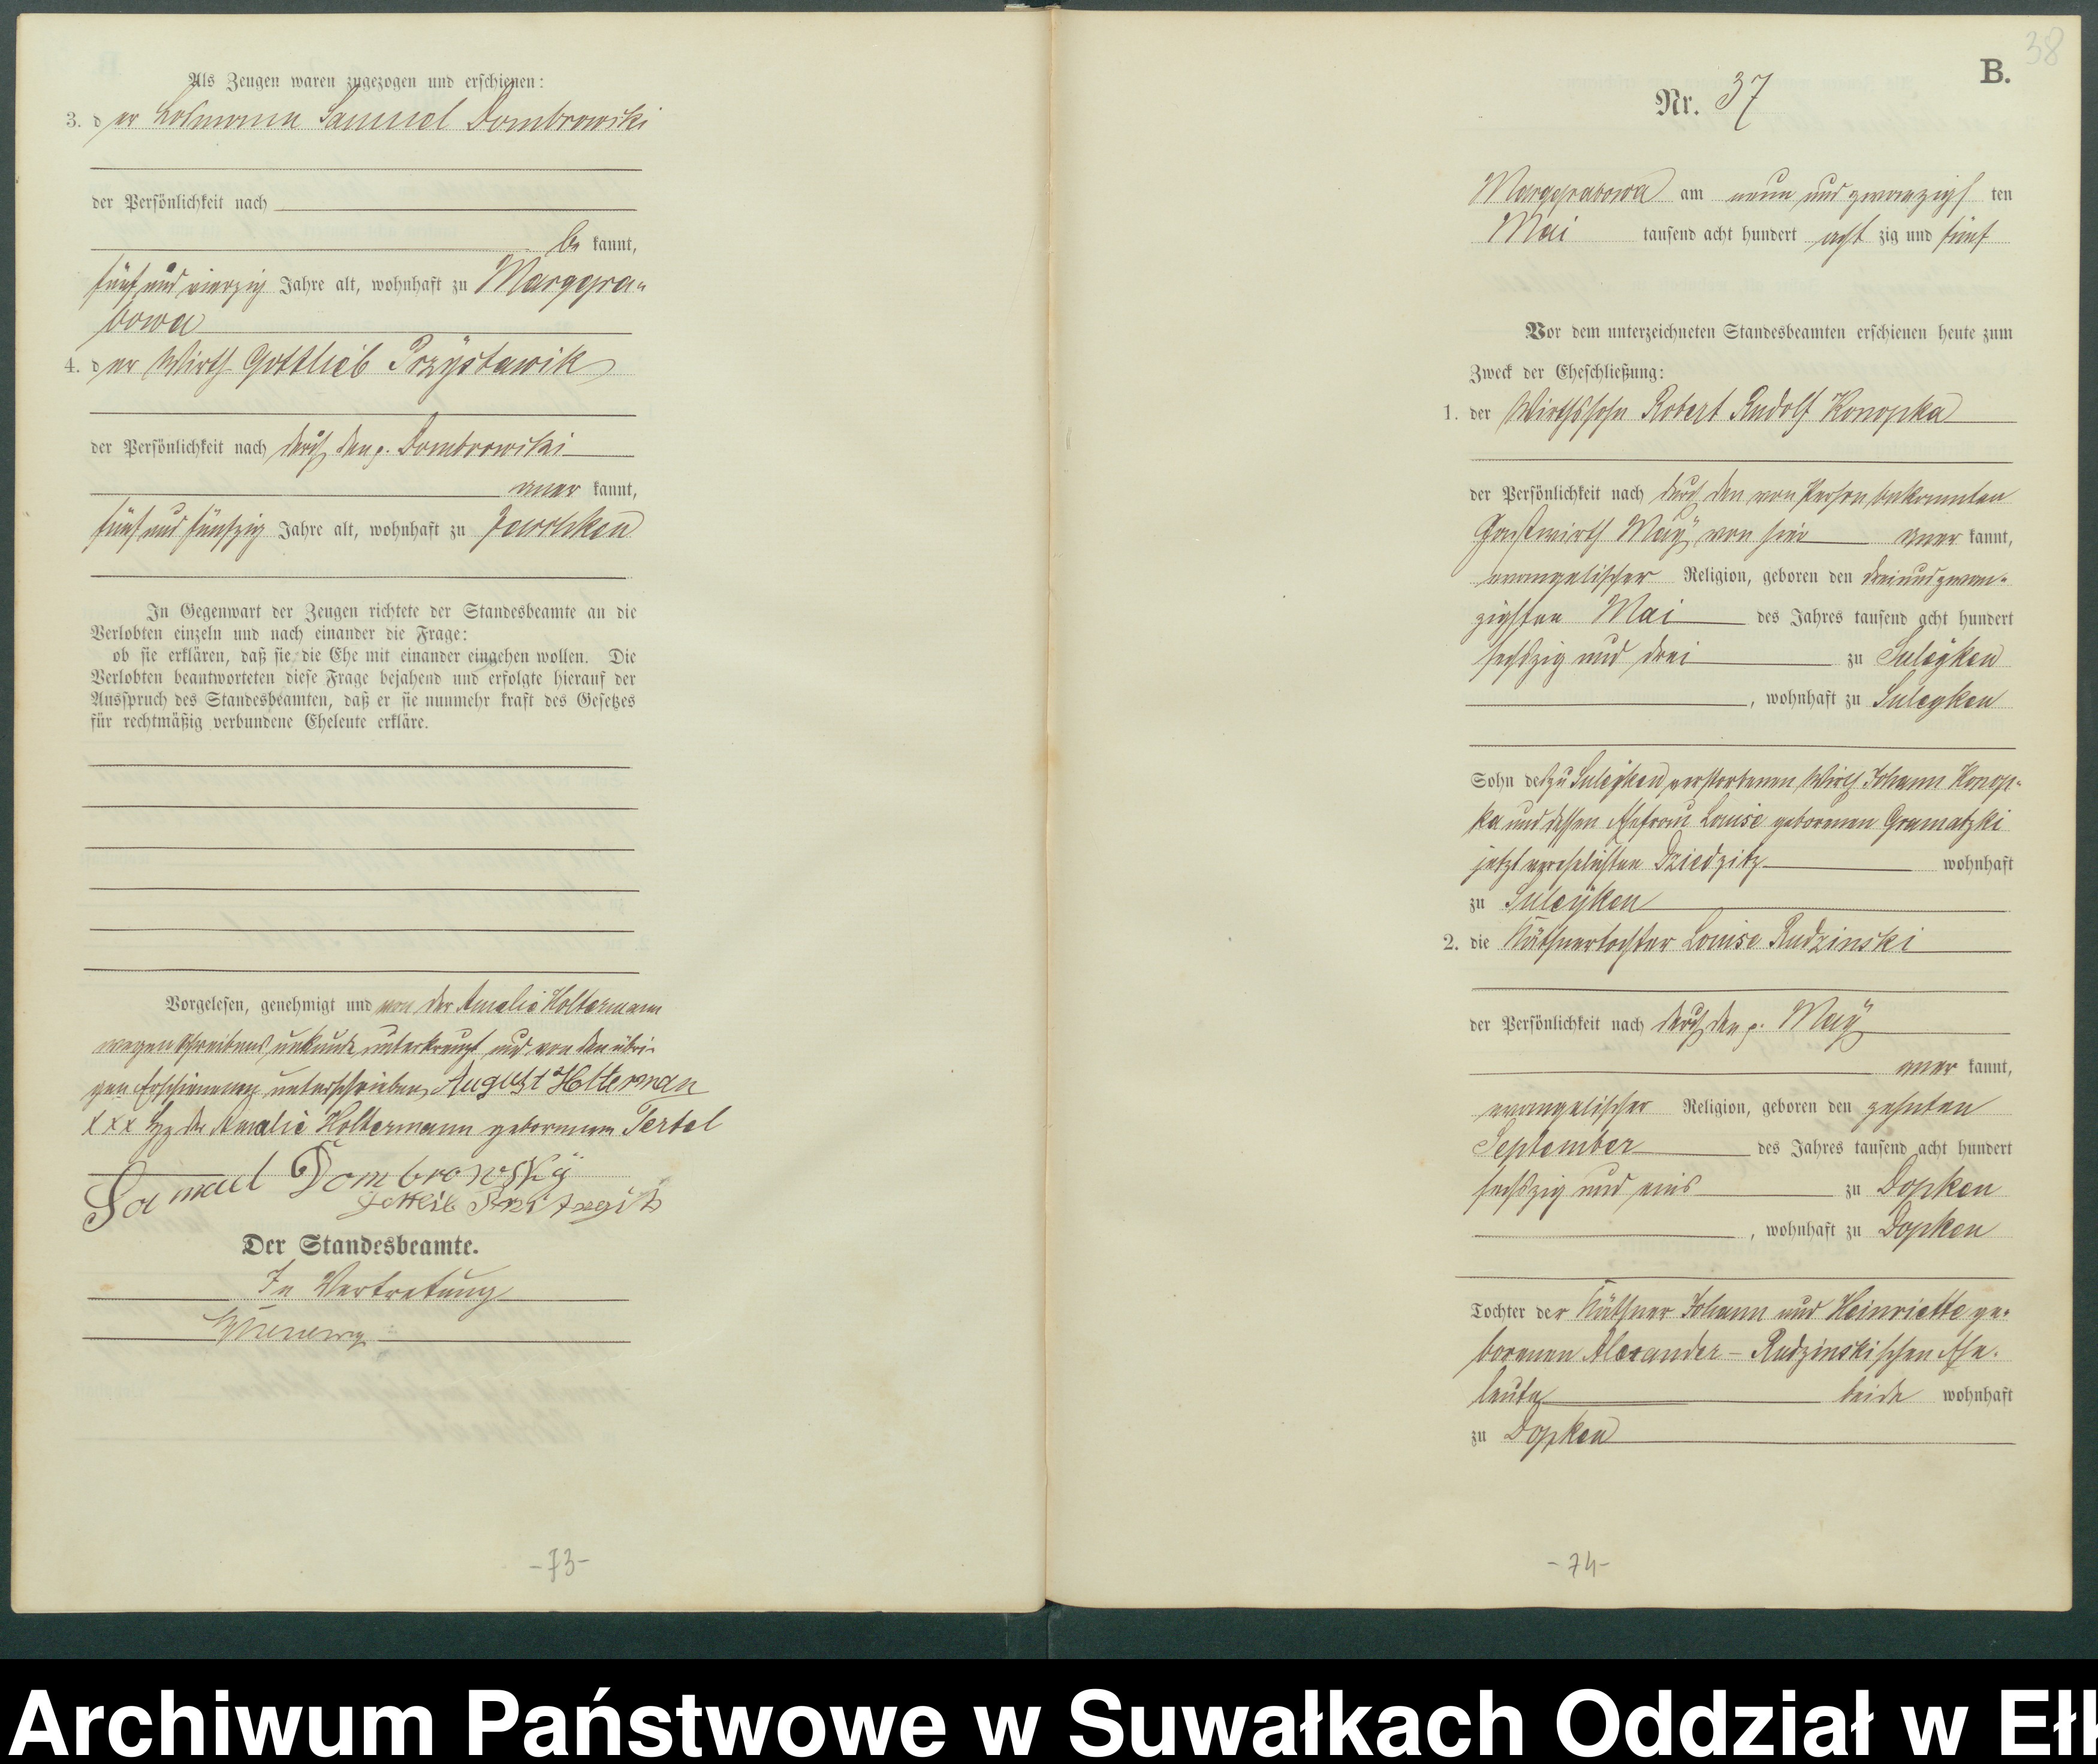 Als Zeugen waren zugezogen und erschienen:
3. der Losmann Samuel Dombrowski
der Persönlichkeit nach
be kannt,
fünf und vierzig Jahre alt, wohnhaft zu Marggra-
bowa
4. der Wirth Gottlieb Przystawik
der Persönlichkeit nach durch den p. Dombrowski
aner kannt,
fünf und fünfzig Jahre alt, wohnhaft zu
In Gegenwart der Zeugen richtete der Standesbeamte an die
Verlobten einzeln und nach einander die Frage:
ob sie erklären, daß sie die Ehe mit einander eingehen wollen. Die
Verlobten beantworteten diese Frage bejahend und erfolgte hierauf der
Ausspruch des Standesbeamten, daß er sie nunmehr kraft des Gesetzes
für rechtmäßig verbundene Eheleute erkläre.
Vorgelesen, genehmigt und von der Amalie Holtermann
wegen Schreibens unkunde unterkreuzt und von den übri-
gen Erschienenen unterschrieben August Holterman
xxx Hz der Amalie Holtermann geborenen Tertel
Samuel Dombrowskÿ
Gottleib
Der Standesbeamte.
In Vertretung
-73-
38
B.
Nr. 37
Marggrabowa am neun und zwanzigs ten
Mai tausend acht hundert acht zig und fünf
Vor dem unterzeichneten Standesbeamten erschienen heute zum
Zweck der Eheschließung:
1. der Wirthssohn Robert Rudolf Konopka
der Persönlichkeit nach durch den von Person bekannten
Gastwirth Maÿ von hier aner kannt,
evangelischer Religion, geboren den dreiundzwan-
zigsten Mai des Jahres tausend acht hundert
sechszig und drei zu Suleÿken
, wohnhaft zu Suleyken
Sohn des zu Suleÿken verstorbenen Wirth Johann Konop-
ka und dessen Ehefrau Louise geborenen Gramatzki
jetzt verehelichten Dziedzitz wohnhaft
zu Suleÿken
2. die Käthnertochter Louise Rudzinski
der Persönlichkeit nach durch den p. Maÿ
aner kannt,
evangelischer Religion, geboren den zehnten
September des Jahres tausend acht hundert
sechszig und eins zu Dopken
, wohnhaft zu Dopken
Tochter der Käthner Johann und Heinriette ge-
borenen Alexander - Rudzinskischen Ehe-
leute beide wohnhaft
zu Dopken
-74-
Archiwum Państwowe w Suwałkach Oddział w Ełk